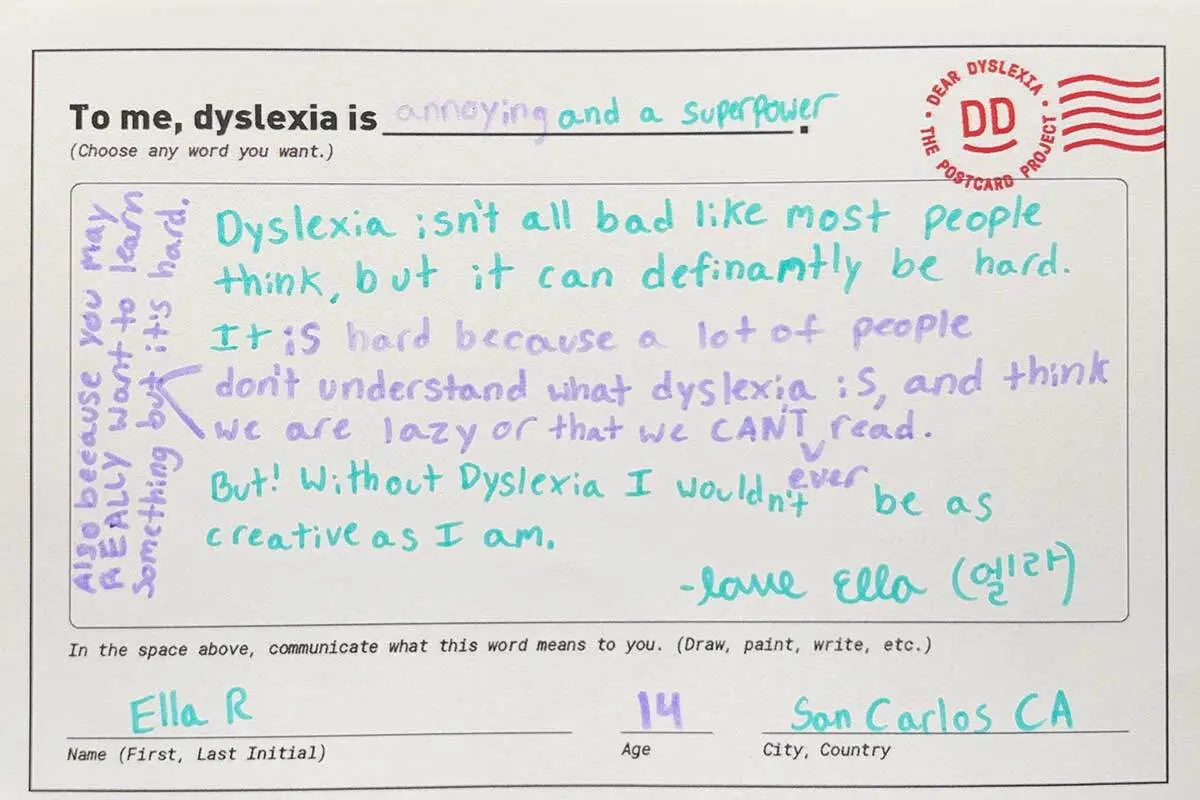 To me, dyslexia is annoying and a superpower.
(Choose any word you want.)
DEAR DYSLEXIA • THE POSTCARD PROJECT •
DD
Also because you may
REALLY want to learn
something but it's hard.
Dyslexia isn't all bad like most people
think, but it can definamtly be hard.
It is hard because a lot of people
don't understand what dyslexia is, and think
we are lazy or that we CAN'T read.
But! Without Dyslexia I wouldn't ever be as
creative as I am.
-love Ella (엘라)
In the space above, communicate what this word means to you. (Draw, paint, write, etc.)
Ella R 14 San Carlos CA
Name (First, Last Initial) Age City, Country